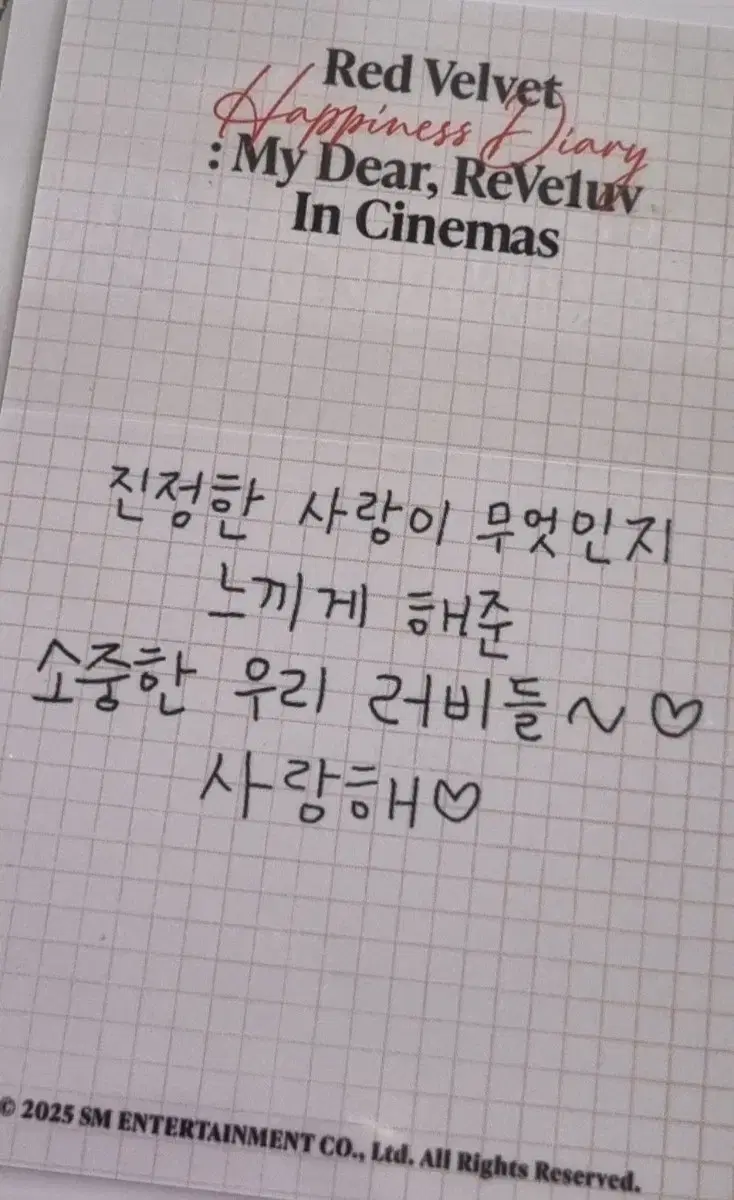 Red Velvet
Happiness Diary
: My Dear, ReVe1uv
In Cinemas
진정한 사랑이 무엇인지
느끼게 해준
소중한 우리 러비들~♡
사랑해♡
© 2025 SM ENTERTAINMENT CO., Ltd. All Rights Reserved.